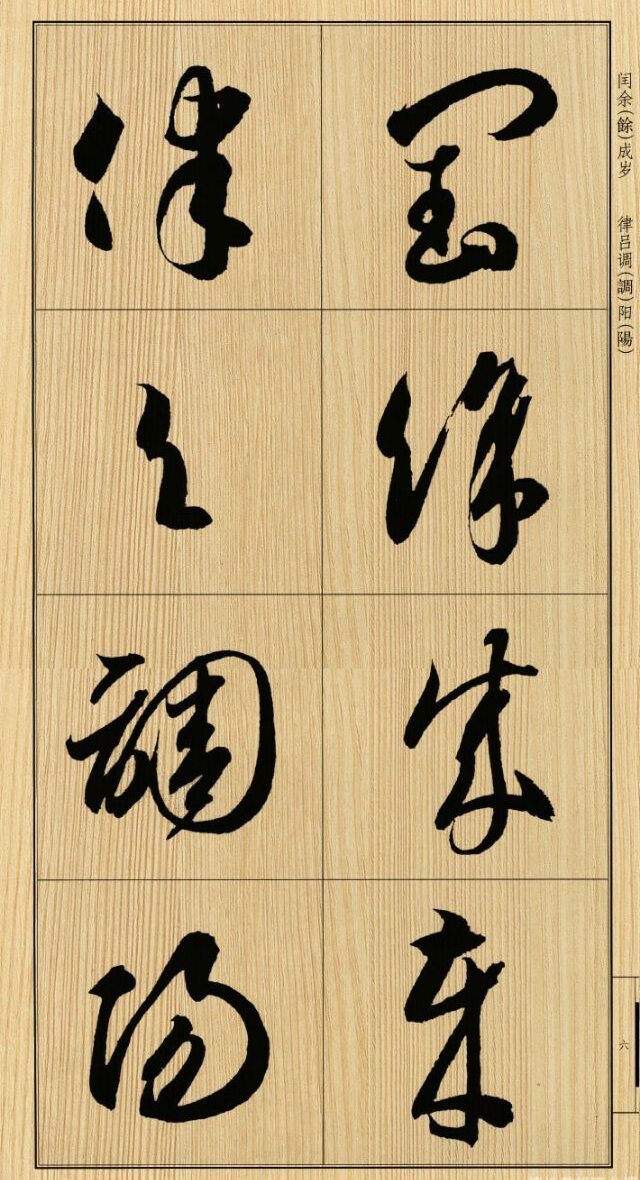 闰余(餘)成岁 律吕调(調)阳(陽)
閏餘成歲
律呂調陽
六